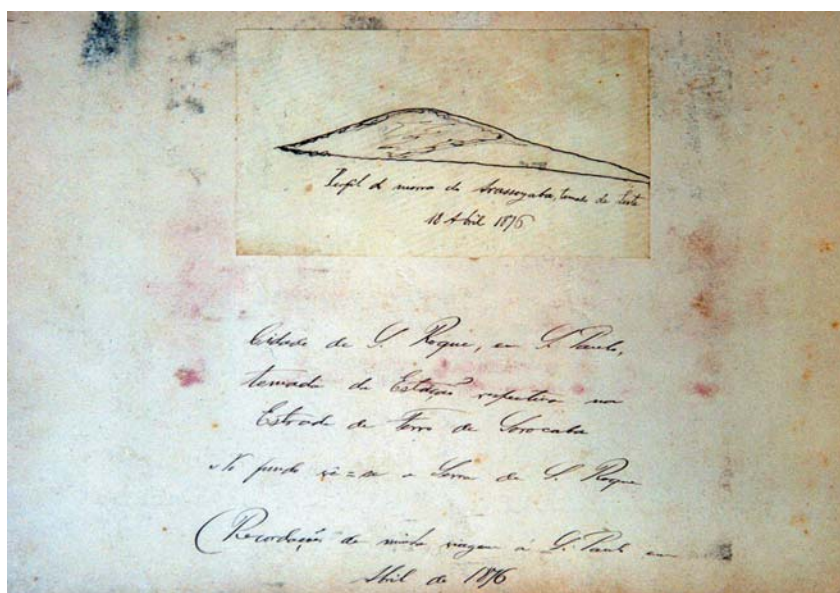 Perfil d morro de Arassoyaba, tomado de Leste
18 Abril 1876
Cidade de S. Roque, em S. Paulo,
tomada da Estação respectiva na
Estrada de Ferro de Sorocaba
No fundo vê=se a Serra de S. Roque
(Recordação de minha viagem á S. Paulo em
Abril de 1876